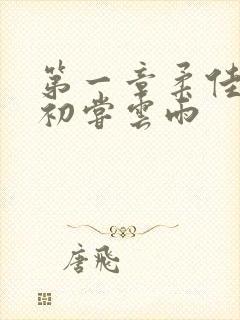 第一章柔佳
初嘗雲雨
唐飛